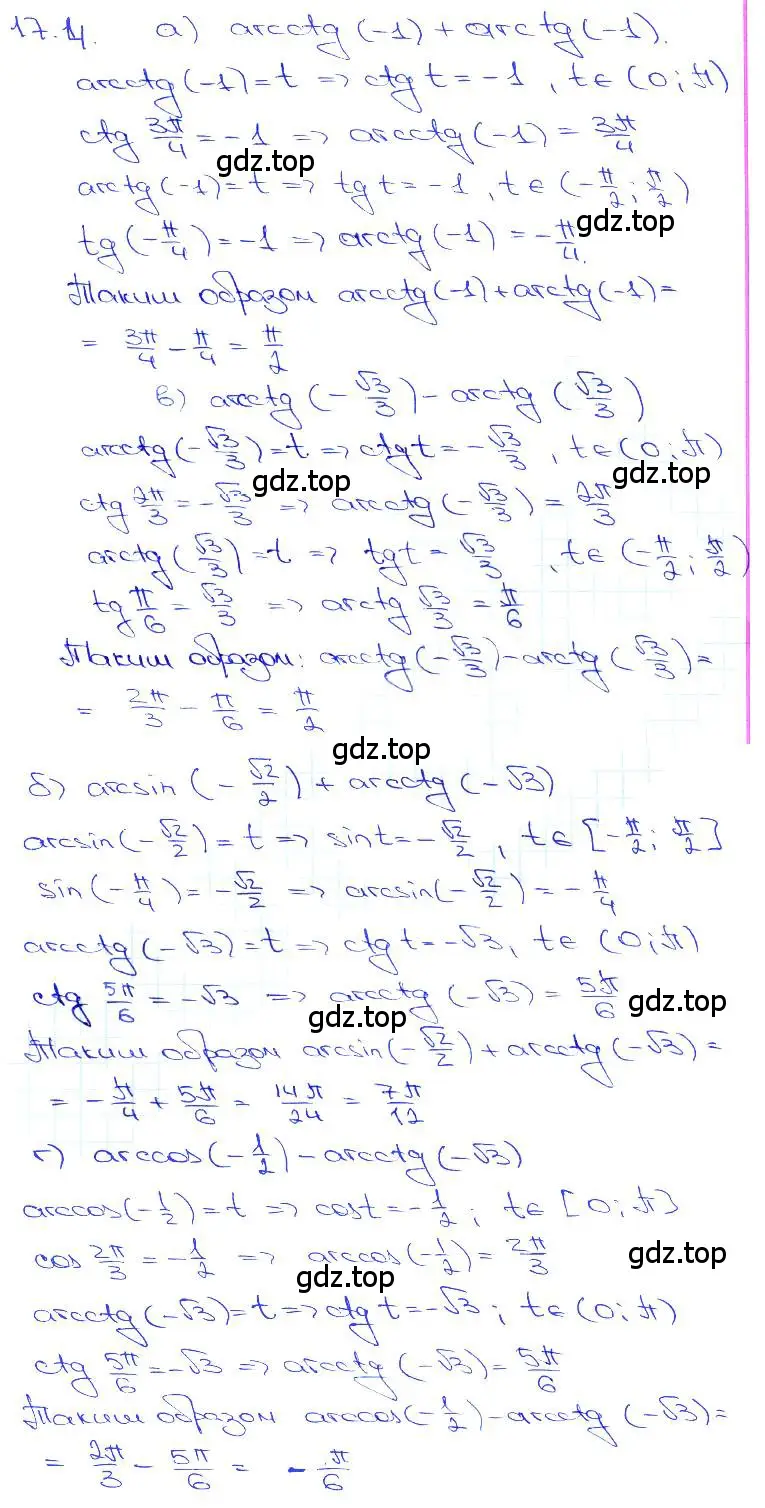 17.4. а) arcctg (-1) + arctg (-1).
arcctg (-1) = t => ctg t = -1, t ∈ (0; π)
ctg 3π/4 = -1 => arcctg (-1) = 3π/4
gdz.top
arctg (-1) = t => tg t = -1, t ∈ (-π/2; π/2)
gdz.top
tg (-π/4) = -1 => arctg (-1) = -π/4.
Таким образом arcctg (-1) + arctg (-1) =
= 3π/4 - π/4 = π/2
в) arcctg (-√3/3) - arctg (√3/3)
arcctg (-√3/3) = t => ctg t = -√3/3, t ∈ (0; π)
gdz.top gdz.top
ctg 2π/3 = -√3/3 => arcctg (-√3/3) = 2π/3
arctg (√3/3) = t => tg t = √3/3, t ∈ (-π/2; π/2)
tg π/6 = √3/3 => arctg √3/3 = π/6
Таким образом: arcctg (-√3/3) - arctg (√3/3) =
= 2π/3 - π/6 = π/2
gdz.top
б) arcsin (-√2/2) + arcctg (-√3)
arcsin (-√2/2) = t => sin t = -√2/2, t ∈ [-π/2; π/2]
sin (-π/4) = -√2/2 => arcsin (-√2/2) = -π/4
arcctg (-√3) = t => ctg t = -√3, t ∈ (0; π)
ctg 5π/6 = -√3 => arcctg (-√3) = 5π/6
gdz.top gdz.top
Таким образом arcsin (-√2/2) + arcctg (-√3) =
= -π/4 + 5π/6 = 14π/24 = 7π/12
г) arccos (-1/2) - arcctg (-√3)
arccos (-1/2) = t => cos t = -1/2; t ∈ [0; π]
cos 2π/3 = -1/2 => arccos (-1/2) = 2π/3
gdz.top gdz.top
arcctg (-√3) = t => ctg t = -√3; t ∈ (0; π)
ctg 5π/6 = -√3 => arcctg (-√3) = 5π/6
Таким образом arccos (-1/2) - arcctg (-√3) =
= 2π/3 - 5π/6 = -π/6